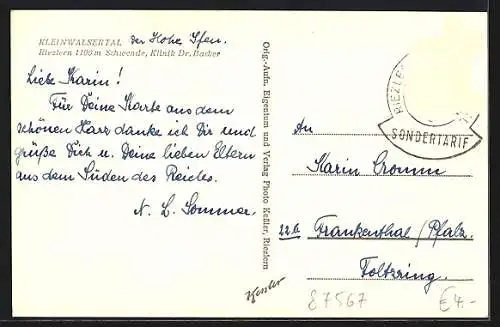 KLEINWALSERTAL der Hohe Ifen.
Riezlern 1100 m Schwende, Klinik Dr. Backer
Liebe Karin!
Für Deine Karte aus dem
schönen Harz danke ich Dir und
grüße Dich u. Deine lieben Eltern
aus dem Süden des Reiches.
N. L. Sommer.
Orig.-Aufn. Eigentum und Verlag Photo Keßler, Riezlern
Kessler
RIEZLER
SONDERTARIF
An
Karin Cromm
22b Frankenthal/Pfalz
Foltzring.
87567 €4.-